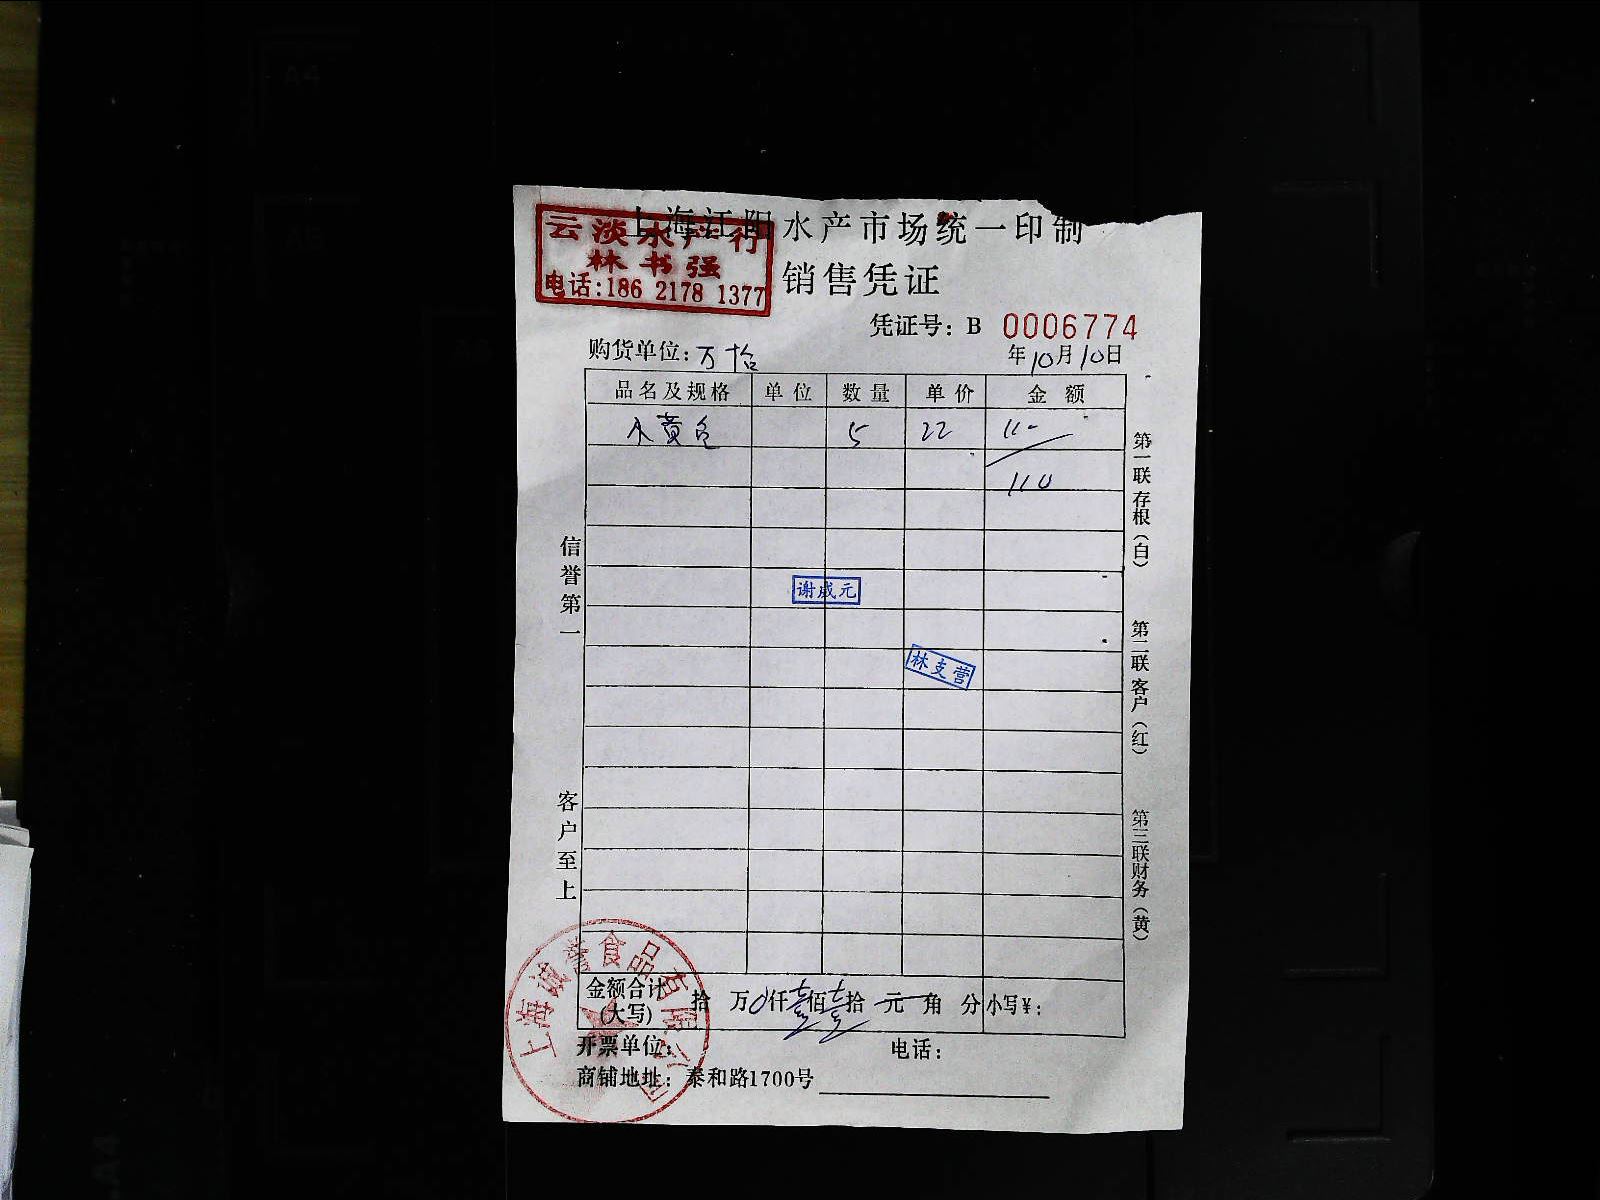 上海江阳水产市场统一印制
云淡水产行
林书强
电话:186 2178 1377
销售凭证
凭证号: B 0006774
购货单位: 万怡
年10月10日
品名及规格 单位 数量 单价 金额
小黄鱼 5 22 11-
110
谢成元
林支营
信誉第一
客户至上
第一联存根(白)
第二联客户(红)
第三联财务(黄)
金额合计(大写) 拾 万 0仟壹佰壹拾 元 角 分 小写¥:
开票单位: 电话:
商铺地址: 泰和路1700号
上海诚誉食品有限公司